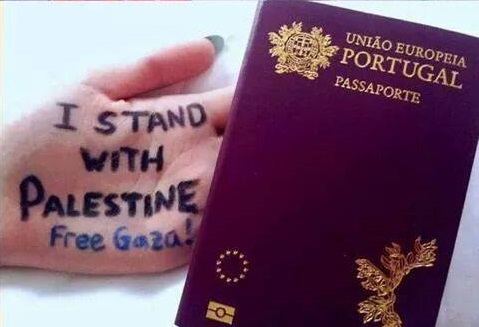 I STAND
WITH
PALESTINE
Free Gaza!
UNIÃO EUROPEIA
PORTUGAL
PASSAPORTE